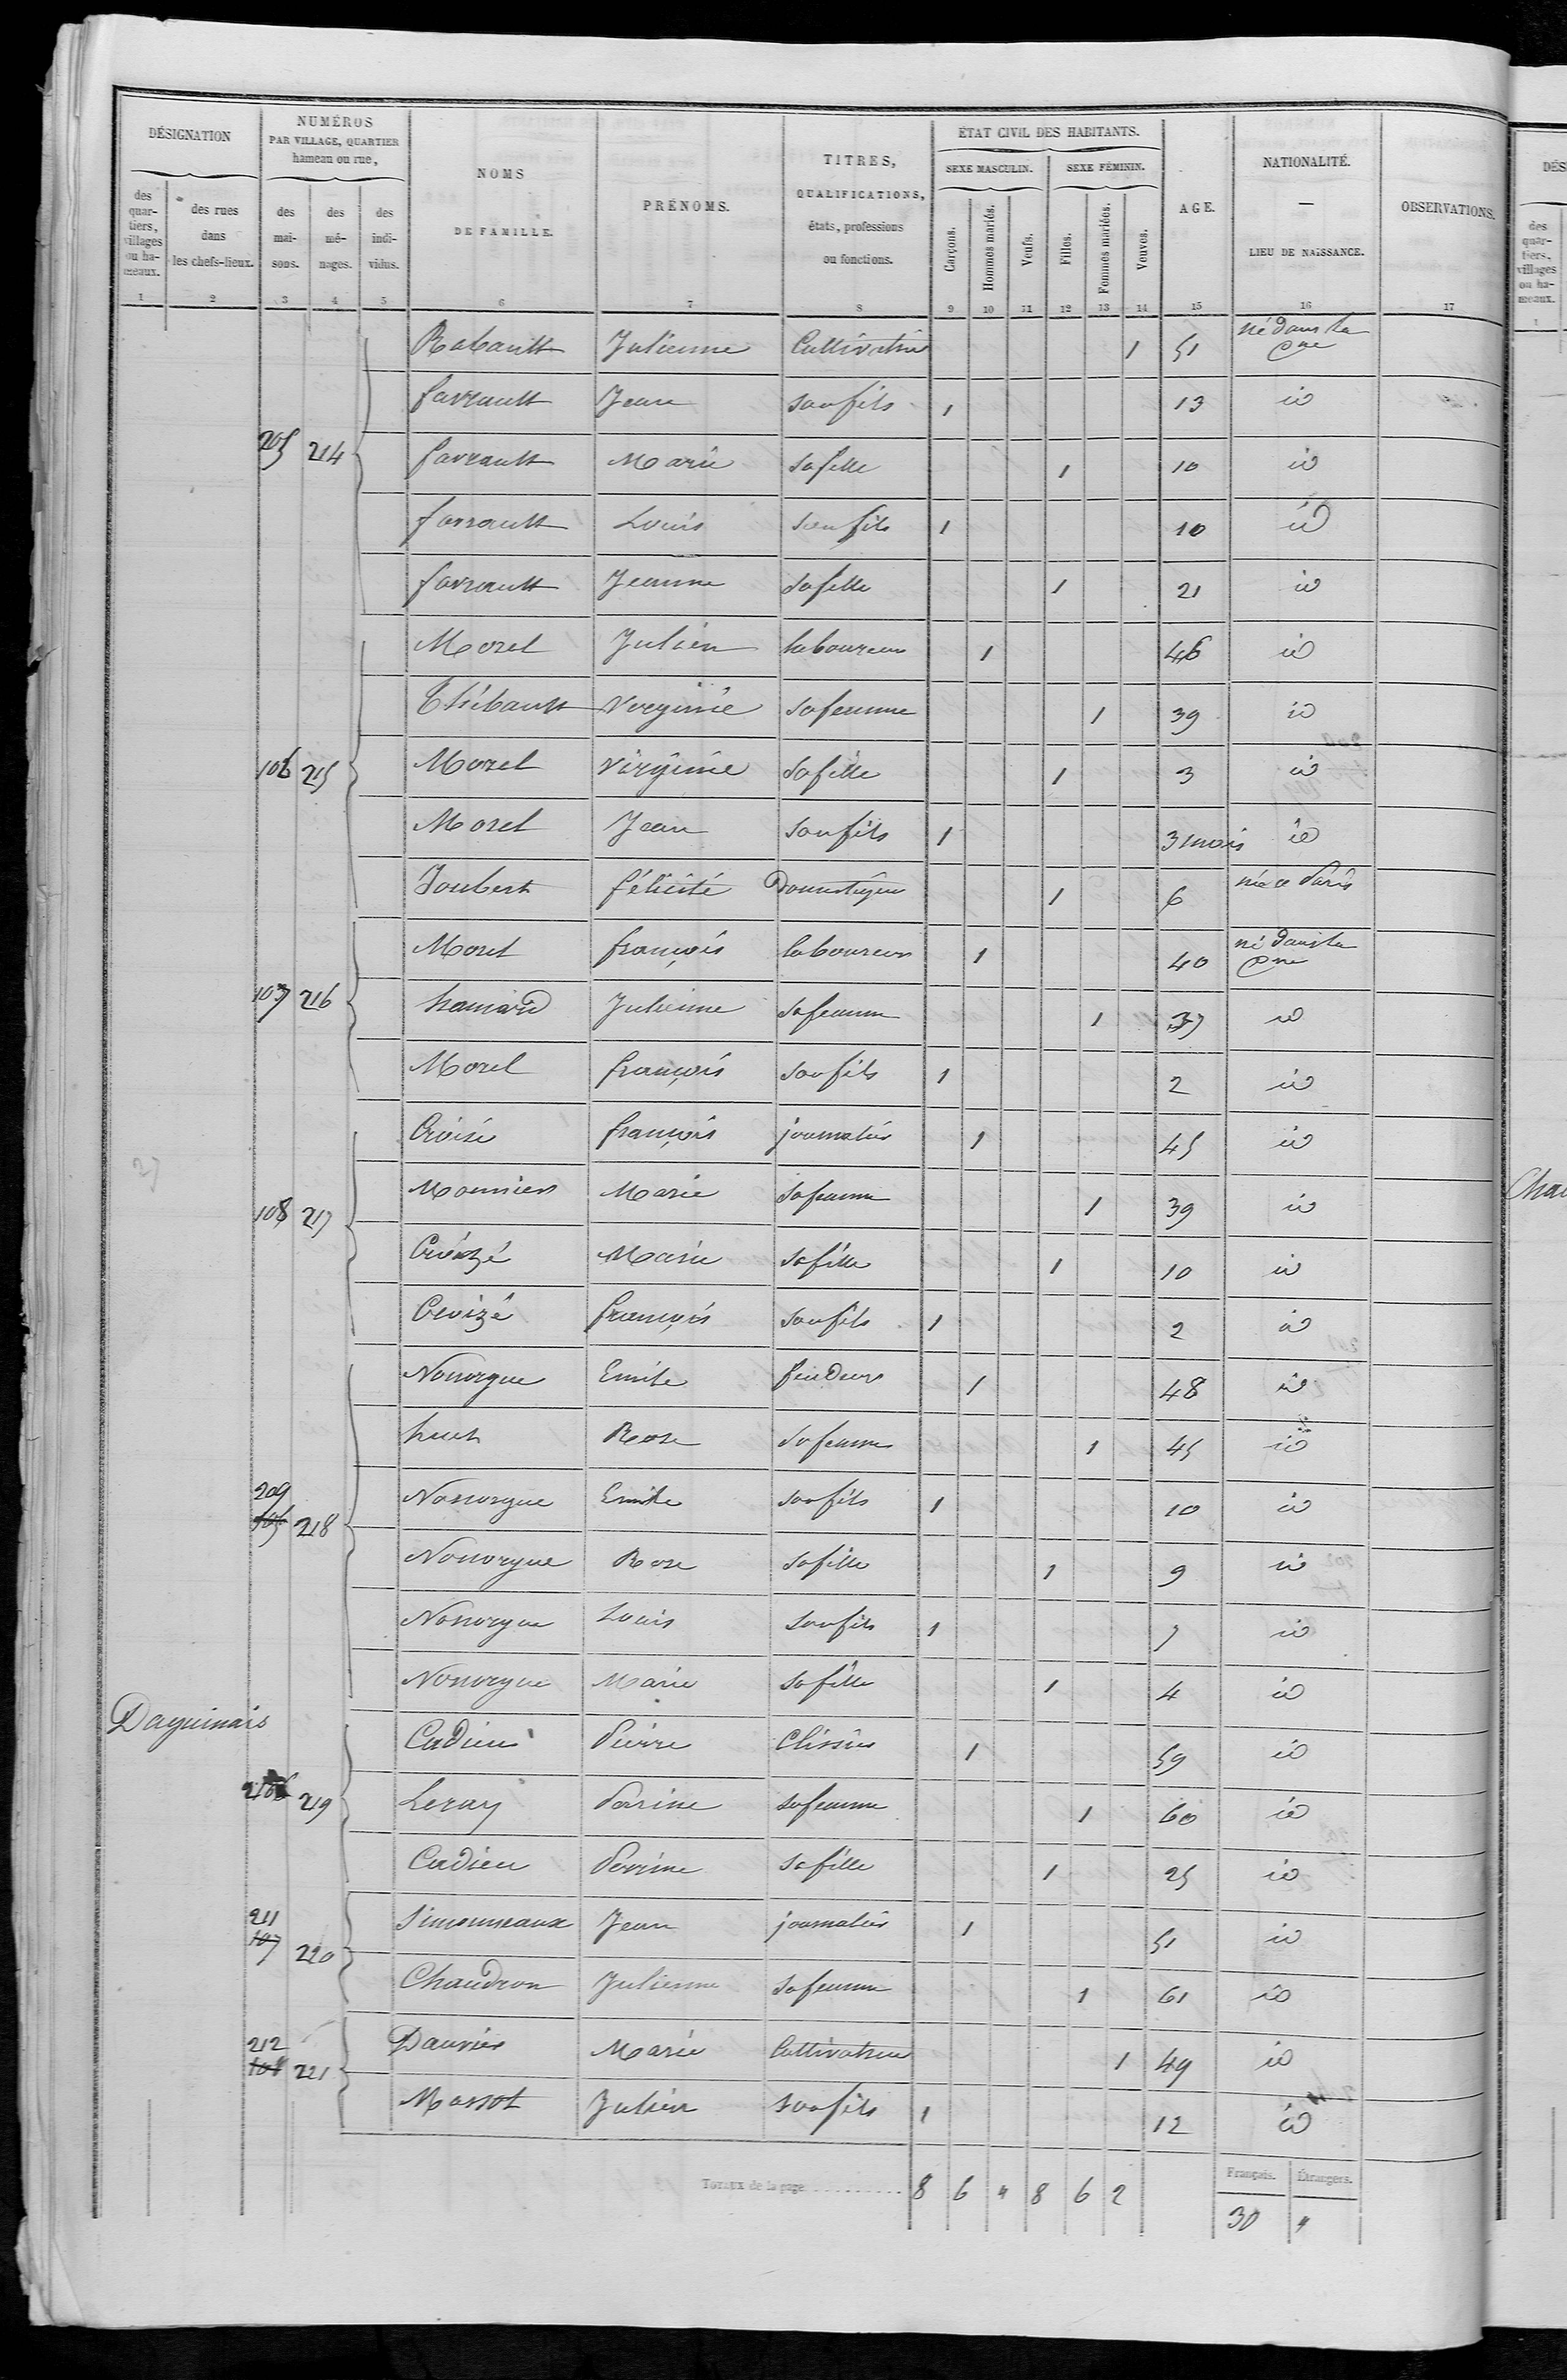 DÉSIGNATION
NUMÉROS
PAR VILLAGE, QUARTIER
hameau ou rue,
des quartiers, villages ou hameaux.
des rues dans les chefs-lieux.
des maisons.
des ménages.
des individus.
NOMS
DE FAMILLE.
PRÉNOMS.
TITRES,
QUALIFICATIONS,
états, professions
ou fonctions.
ÉTAT CIVIL DES HABITANTS.
SEXE MASCULIN.
SEXE FÉMININ.
Garçons.
Hommes mariés.
Veufs.
Filles.
Femmes mariées.
Veuves.
AGE.
NATIONALITÉ.
—
LIEU DE NAISSANCE.
OBSERVATIONS.
1 2 3 4 5 6 7 8 9 10 11 12 13 14 15 16 17
Rabault Julienne Cultivatrice 1 51 né dans la Cne
favrault Jean son fils 1 13 id
205 214 favrault Marie sa fille 1 10 id
favrault Louis son fils 1 10 id
favrault Jeanne sa fille 1 21 id
Morel Julien laboureur 1 46 id
Thébault Virginie sa femme 1 39 id
106 215 Morel Virginie sa fille 1 3 id
Morel Jean son fils 1 3 mois id
Joubert félicité Domestique 1 6 née a Paris
Morel françois laboureur 1 40 né dans la Cne
107 216 hamard Julienne sa femme 1 37 id
Morel françois son fils 1 2 id
Croisé françois journalier 1 45 id
27
108 217 Monnier Marie sa femme 1 39 id
Croizé Marie sa fille 1 10 id
Croizé françois son fils 1 2 id
Nourgue Emile 1 48 id
huet Rose sa femme 1 45 id
209
218 Nourgue Emile son fils 1 10 id
Nourgue Rose sa fille 1 9 id
Nourgue Louis son fils 1 7 id
Nourgue Marie sa fille 1 4 id
Daguinais
Cadieu Pierre Clissier 1 59 id
219 Leray Perrine sa femme 1 60 id
Cadieu Perrine sa fille 1 25 id
211
107 220 Simonneaux Jean journalier 1 51 id
Chaudron Julienne sa femme 1 61 id
212
108 221 Dauvier Marie Cultivatrice 1 49 id
Massot Julien son fils 1 12 id
Totaux de la page 8 6 " 8 6 2
Français. Étrangers.
30 "
DÉS
des quartiers, villages ou hameaux.
1
Cha